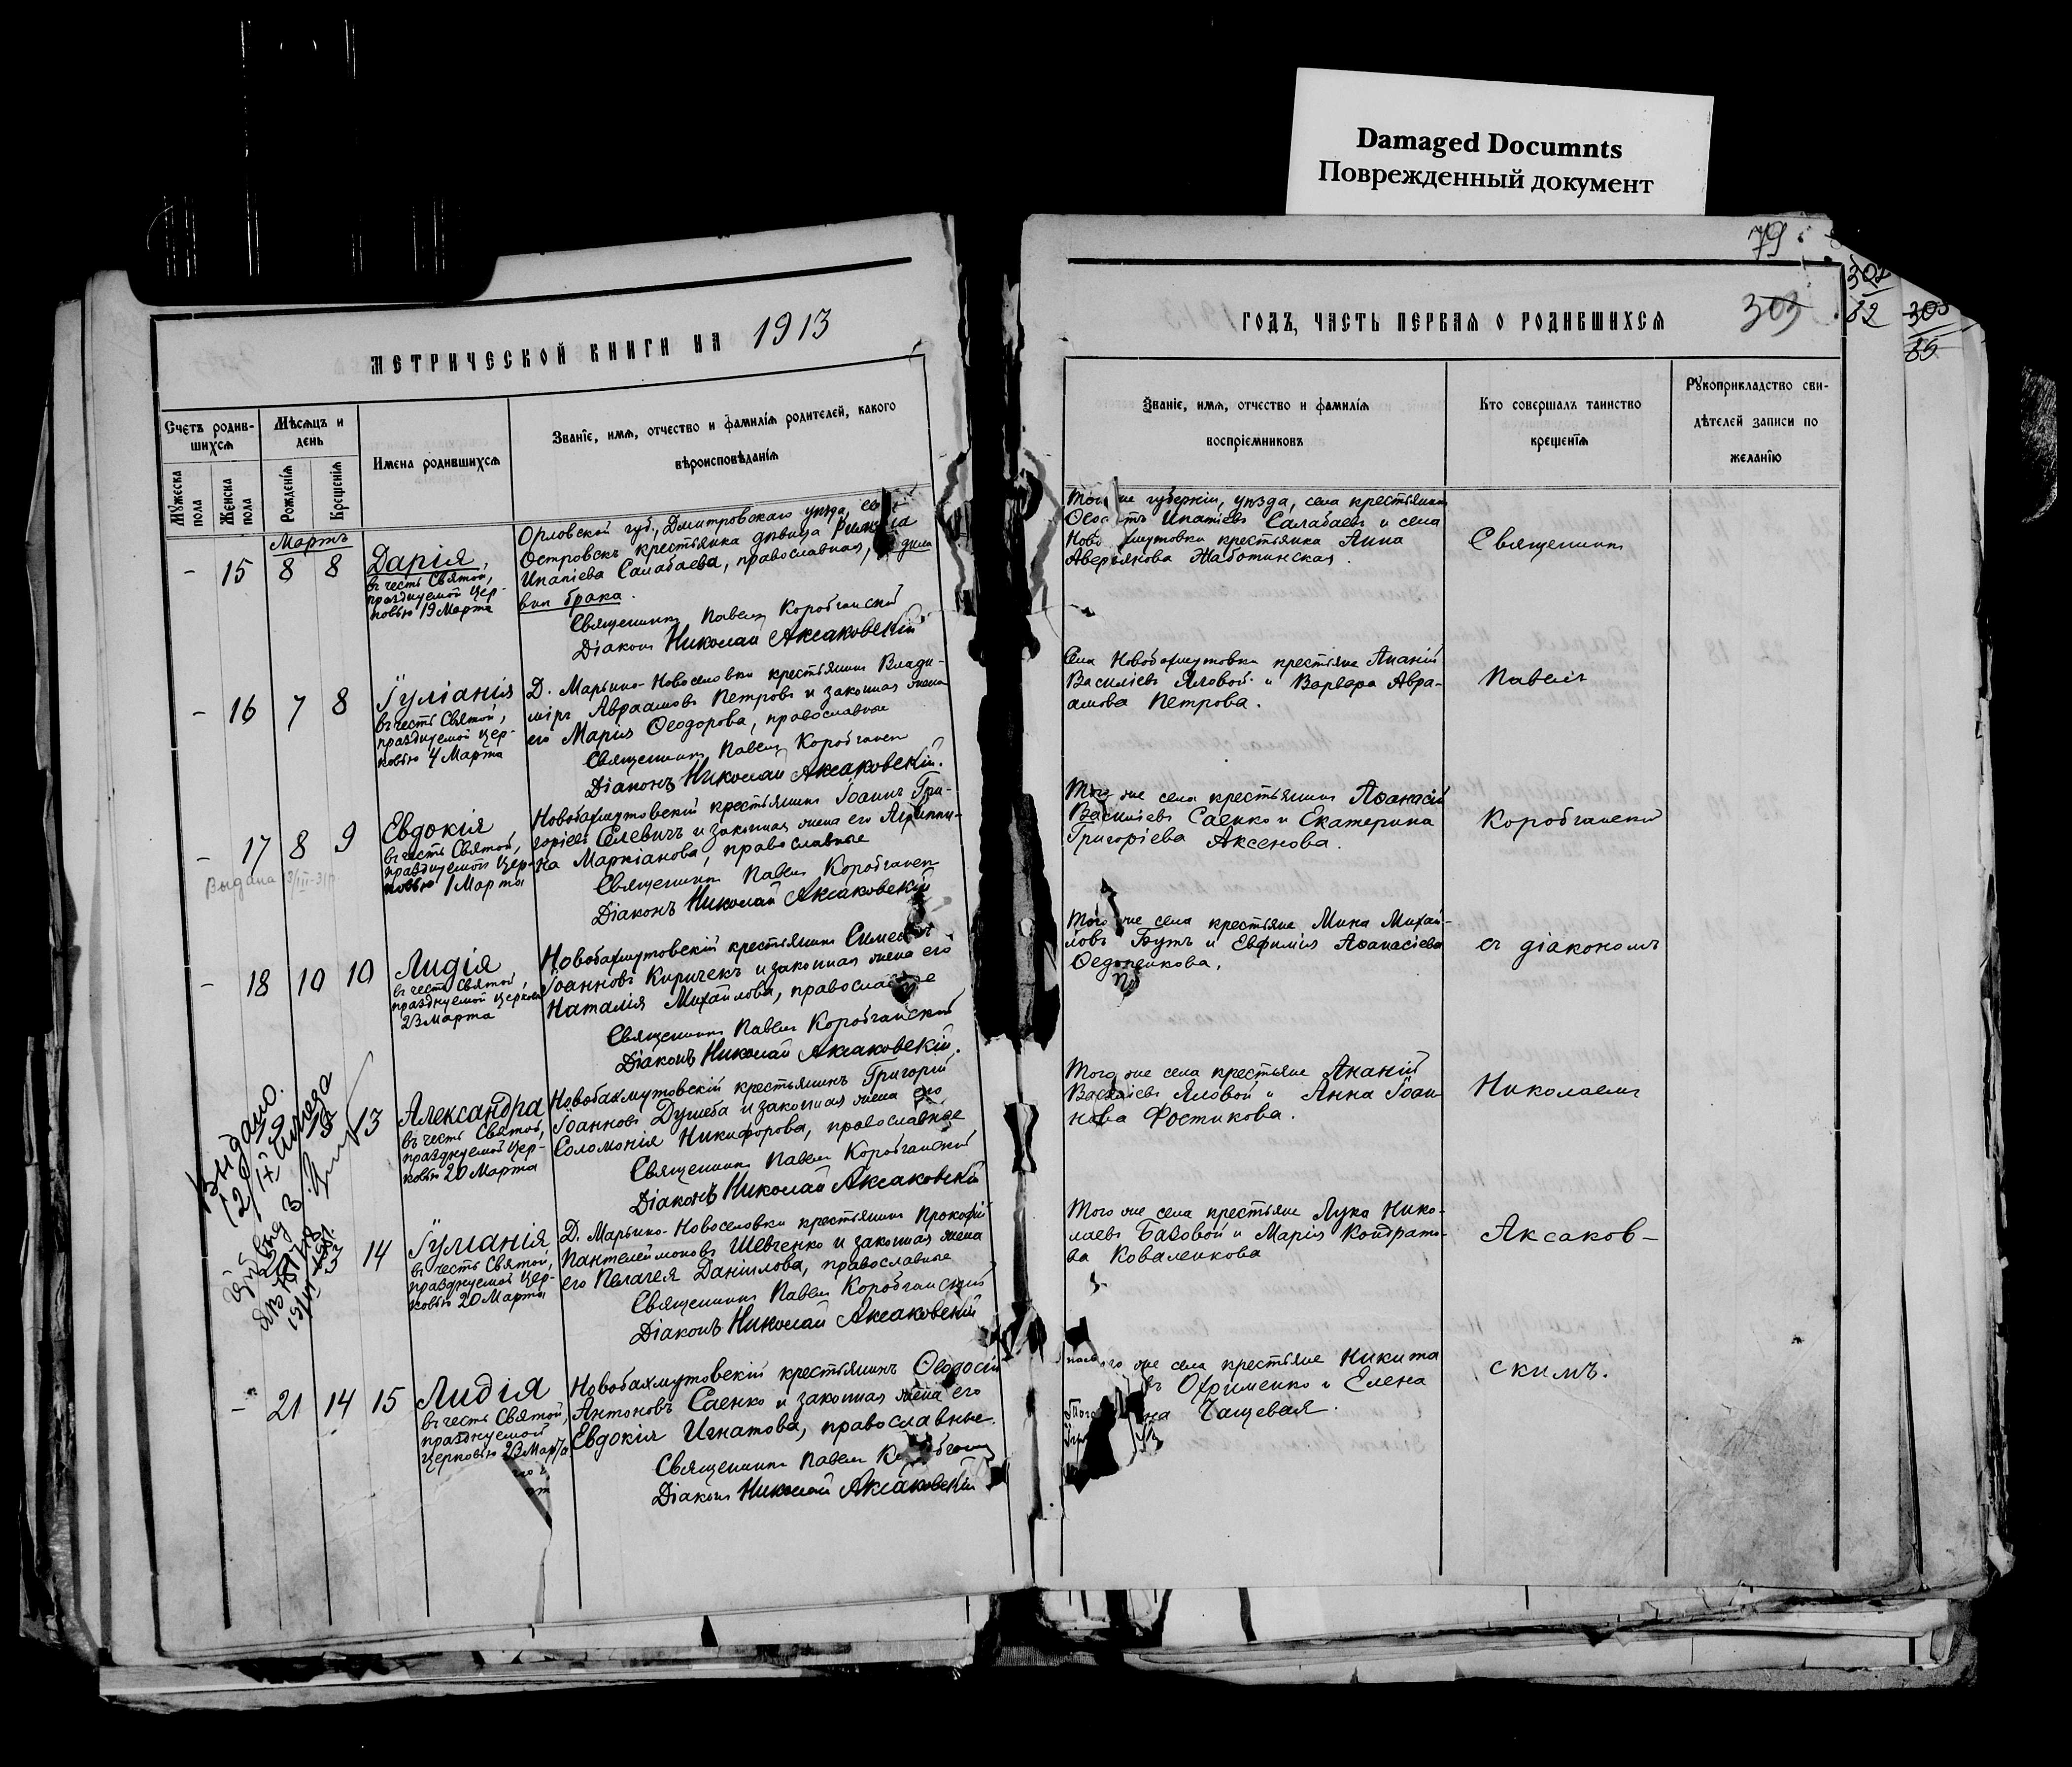 Damaged Documnts
Поврежденный документ
79
302
82
303
305
85
МЕТРИЧЕСКОЙ КНИГИ НА 1913
ГОДЪ, ЧАСТЬ ПЕРВАЯ О РОДИВШИХСЯ
Счетъ родив-
шихся
Мѣсяцъ и
день
Имена родившихся
Званіе, имя, отчество и фамилія родителей, какого
вѣроисповѣданія
Мужеска пола
Женска пола
Рожденія
Крещенія
Званіе, имя, отчество и фамилія
воспріемниковъ
Кто совершалъ таинство
крещенія
Рукоприкладство сви-
дѣтелей записи по
желанію
Мартъ
- 15 8 8
Дарія,
въ честь Святой,
празднуемой Цер-
ковью 19 Марта
Орловской губ., Дмитровскаго уѣзда,
Островскъ крестьянка дѣвица
Ипатіева Салабаева, православная,
внѣ брака.
Священникъ Павелъ Коробчанскій
Діаконъ Николай Аксаковскій
же губерніи, уѣзда, села крестьянинъ
Ипатіевъ Салабаевъ и села
крестьянка Анна
Аверьянова Жаботинская.
Священникъ
- 16 7 8
Іуліанія
въ честь Святой,
празднуемой Цер-
ковью 4 Марта
Д. Марьино-Новоселовки крестьянинъ Влади-
міръ Авраамовъ Петровъ и законная жена
его Марія Ѳеодорова, православные
Священникъ Павелъ Коробчанск
Діаконъ Николай Аксаковскій.
Села Новобахмутовки крестьяне Ананій
Василіевъ Яловой и Варвара Авра-
амова Петрова.
Павелъ
- 17 8 9
Выдана 3/III-31г.
Евдокія
въ честь Святой,
празднуемой Цер-
ковью 1 Марта
Новобахмутовскій крестьянинъ Іоаннъ Гри-
горіевъ Селевичъ и законная жена его Агриппи-
на Маркіанова, православные
Священникъ Павелъ Коробчанск
Діаконъ Николай Аксаковскій
Того же села крестьянинъ Аѳанасій
Василіевъ Саенко и Екатерина
Григоріева Аксенова.
Коробчанскій
- 18 10 10
Лидія
въ честь Святой,
празднуемой Церковью
23 Марта
Новобахмутовскій крестьянинъ Симеонъ
Іоанновъ Киричекъ и законная жена его
Наталія Михайлова, православные
Священникъ Павелъ Коробчанскій
Діаконъ Николай Аксаковскій.
Того же села крестьяне Мина Михай-
ловъ Бутъ и Евфимія Аѳанасіева
Ѳедоренкова.
съ діакономъ
13
Александра
въ честь Святой,
празднуемой Цер-
ковью 20 Марта
Новобахмутовскій крестьянинъ Григорій
Іоанновъ Душеба и законная жена его
Соломонія Никифорова, православные
Священникъ Павелъ Коробчанскій
Діаконъ Николай Аксаковскій
Того же села крестьяне Ананій
Василіевъ Яловой и Анна Іоан-
нова Фостикова.
Николаемъ
14
Іуліанія
въ честь Святой,
празднуемой Цер-
ковью 20 Марта
Д. Марьино-Новоселовки крестьянинъ Прокофій
Пантелеймоновъ Шевченко и законная жена
его Пелагея Даніилова, православные
Священникъ Павелъ Коробчанскій
Діаконъ Николай Аксаковскій
Того же села крестьяне Лука Нико-
лаевъ Базовой и Марія Кондрать-
ва Коваленкова
Аксаков-
- 21 14 15
Лидія
въ честь Святой,
празднуемой
Церковью 23 Марта
Новобахмутовскій крестьянинъ Ѳеодосій
Антоновъ Саенко и законная жена его
Евдокія Игнатова, православные.
Священникъ Павелъ
Діаконъ Николай Аксаковскій
же села крестьяне Никита
Охрименко и Елена
Чащевая.
скимъ.